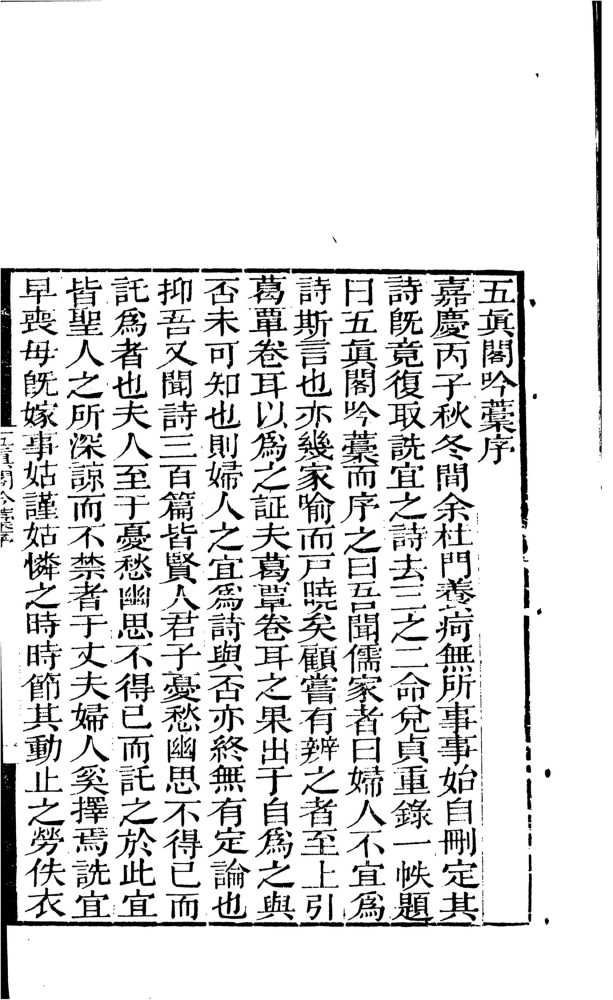 五眞閣吟藁序
嘉慶丙子秋冬間余杜門養疴無所事事始自刪定其
詩旣竟復取詵宜之詩去三之二命兌貞重錄一帙題
曰五眞閣吟藁而序之曰吾聞儒家者曰婦人不宜爲
詩斯言也亦幾家喻而戸曉矣顧嘗有辨之者至上引
葛覃卷耳以爲之証夫葛覃卷耳之果出于自爲之與
否未可知也則婦人之宜爲詩與否亦終無有定論也
抑吾又聞詩三百篇皆賢人君子憂愁幽思不得已而
託爲者也夫人至于憂愁幽思不得已而託之於此宜
皆聖人之所深諒而不禁者于丈夫婦人奚擇焉詵宜
早喪母旣嫁事姑謹姑憐之時時節其動止之勞佚衣
五眞閣吟藁序